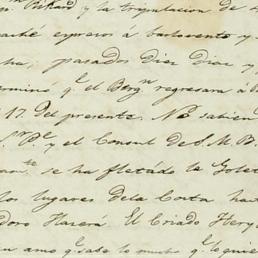 Pickard y la tripulacion de
parte expreso a barlovento y
ha, pasados Diez Dias y
terminó q.e el Berg.n regresara á
17 del presente. No sabien
S.r P.e y el Consul de S. M. B.
se ha fletado la Golet
los lugares dela Costa has
doro Haserá. El Criado Herq
amo q.e sabe lo mucho q.e lo quie